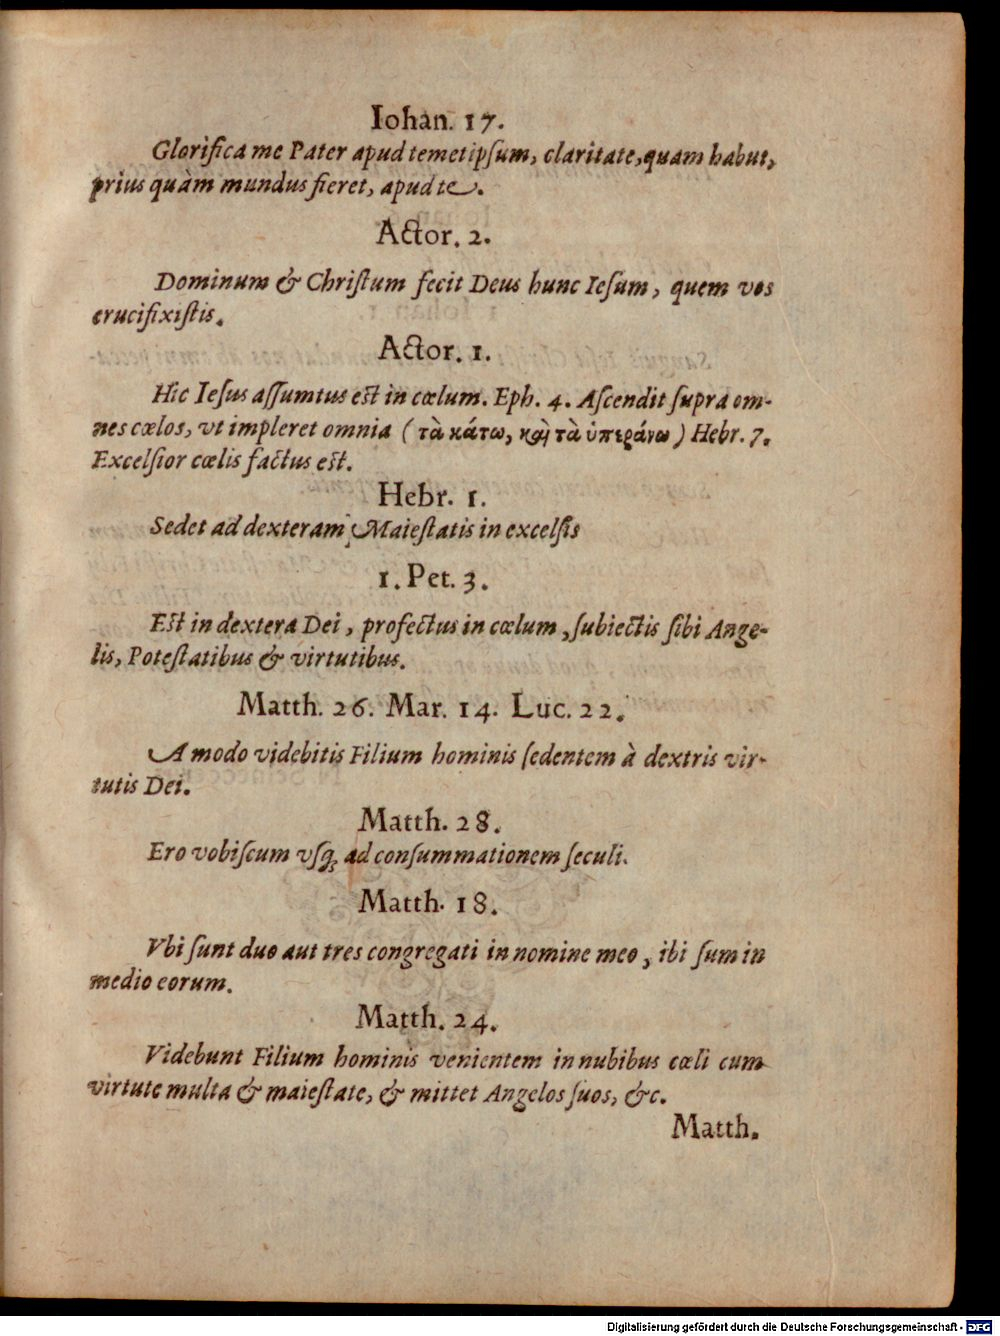 Iohan. 17.
Glorifica me Pater apud temetipſum, claritate, quam habui,
prius quàm mundus fieret, apud te.
Actor. 2.
Dominum & Chriſtum fecit Deus hunc Ieſum, quem vos
crucifixiſtis.
Actor. 1.
Hic Ieſus aſſumtus eſt in cœlum. Eph. 4. Aſcendit ſupra om-
nes cœlos, vt impleret omnia (τὰ κάτω, καὶ τὰ ὑπεράνω) Hebr. 7.
Excelſior cœlis factus eſt.
Hebr. 1.
Sedet ad dexteram Maieſtatis in excelſis
1. Pet. 3.
Eſt in dextera Dei, profectus in cœlum, ſubiectis ſibi Ange-
lis, Poteſtatibus & virtutibus.
Matth. 26. Mar. 14. Luc. 22.
A modo videbitis Filium hominis ſedentem à dextris vir-
tutis Dei.
Matth. 28.
Ero vobiſcum vſq; ad conſummationem ſeculi.
Matth. 18.
Vbi ſunt duo aut tres congregati in nomine meo, ibi ſum in
medio eorum.
Matth. 24.
Videbunt Filium hominis venientem in nubibus cœli cum
virtute multa & maieſtate, & mittet Angelos ſuos, &c.
Matth.
Digitalisierung gefördert durch die Deutsche Forschungsgemeinschaft - DFG